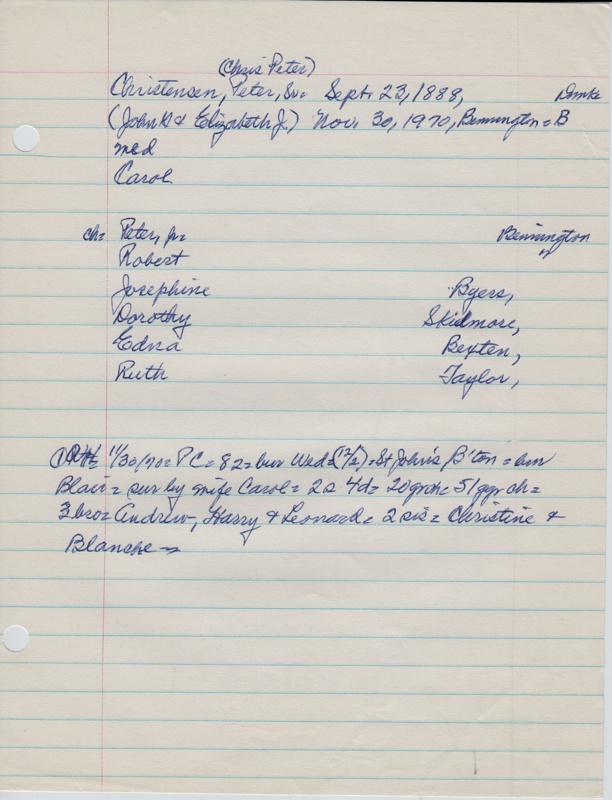 (Chris Peter)
Christensen, Peter, Sr. = Sept. 23, 1888,
(John & Elizabeth J.) Nov. 30, 1970, Bennington = B
md
Carol
ch = Peter, Jr = Bennington
Robert "
Josephine Byers,
Dorothy Skidmore,
Edna Bexten,
Ruth Taylor,
11/30/70 = PC = 82 = bur Wed = (12/2) = St John's B'ton =
Blair = sur by wife Carol = 2s 4d = 20 grch = 51 ggr ch =
3 bro = Andrew, Harry & Leonard = 2 sis = Christine &
Blanche =